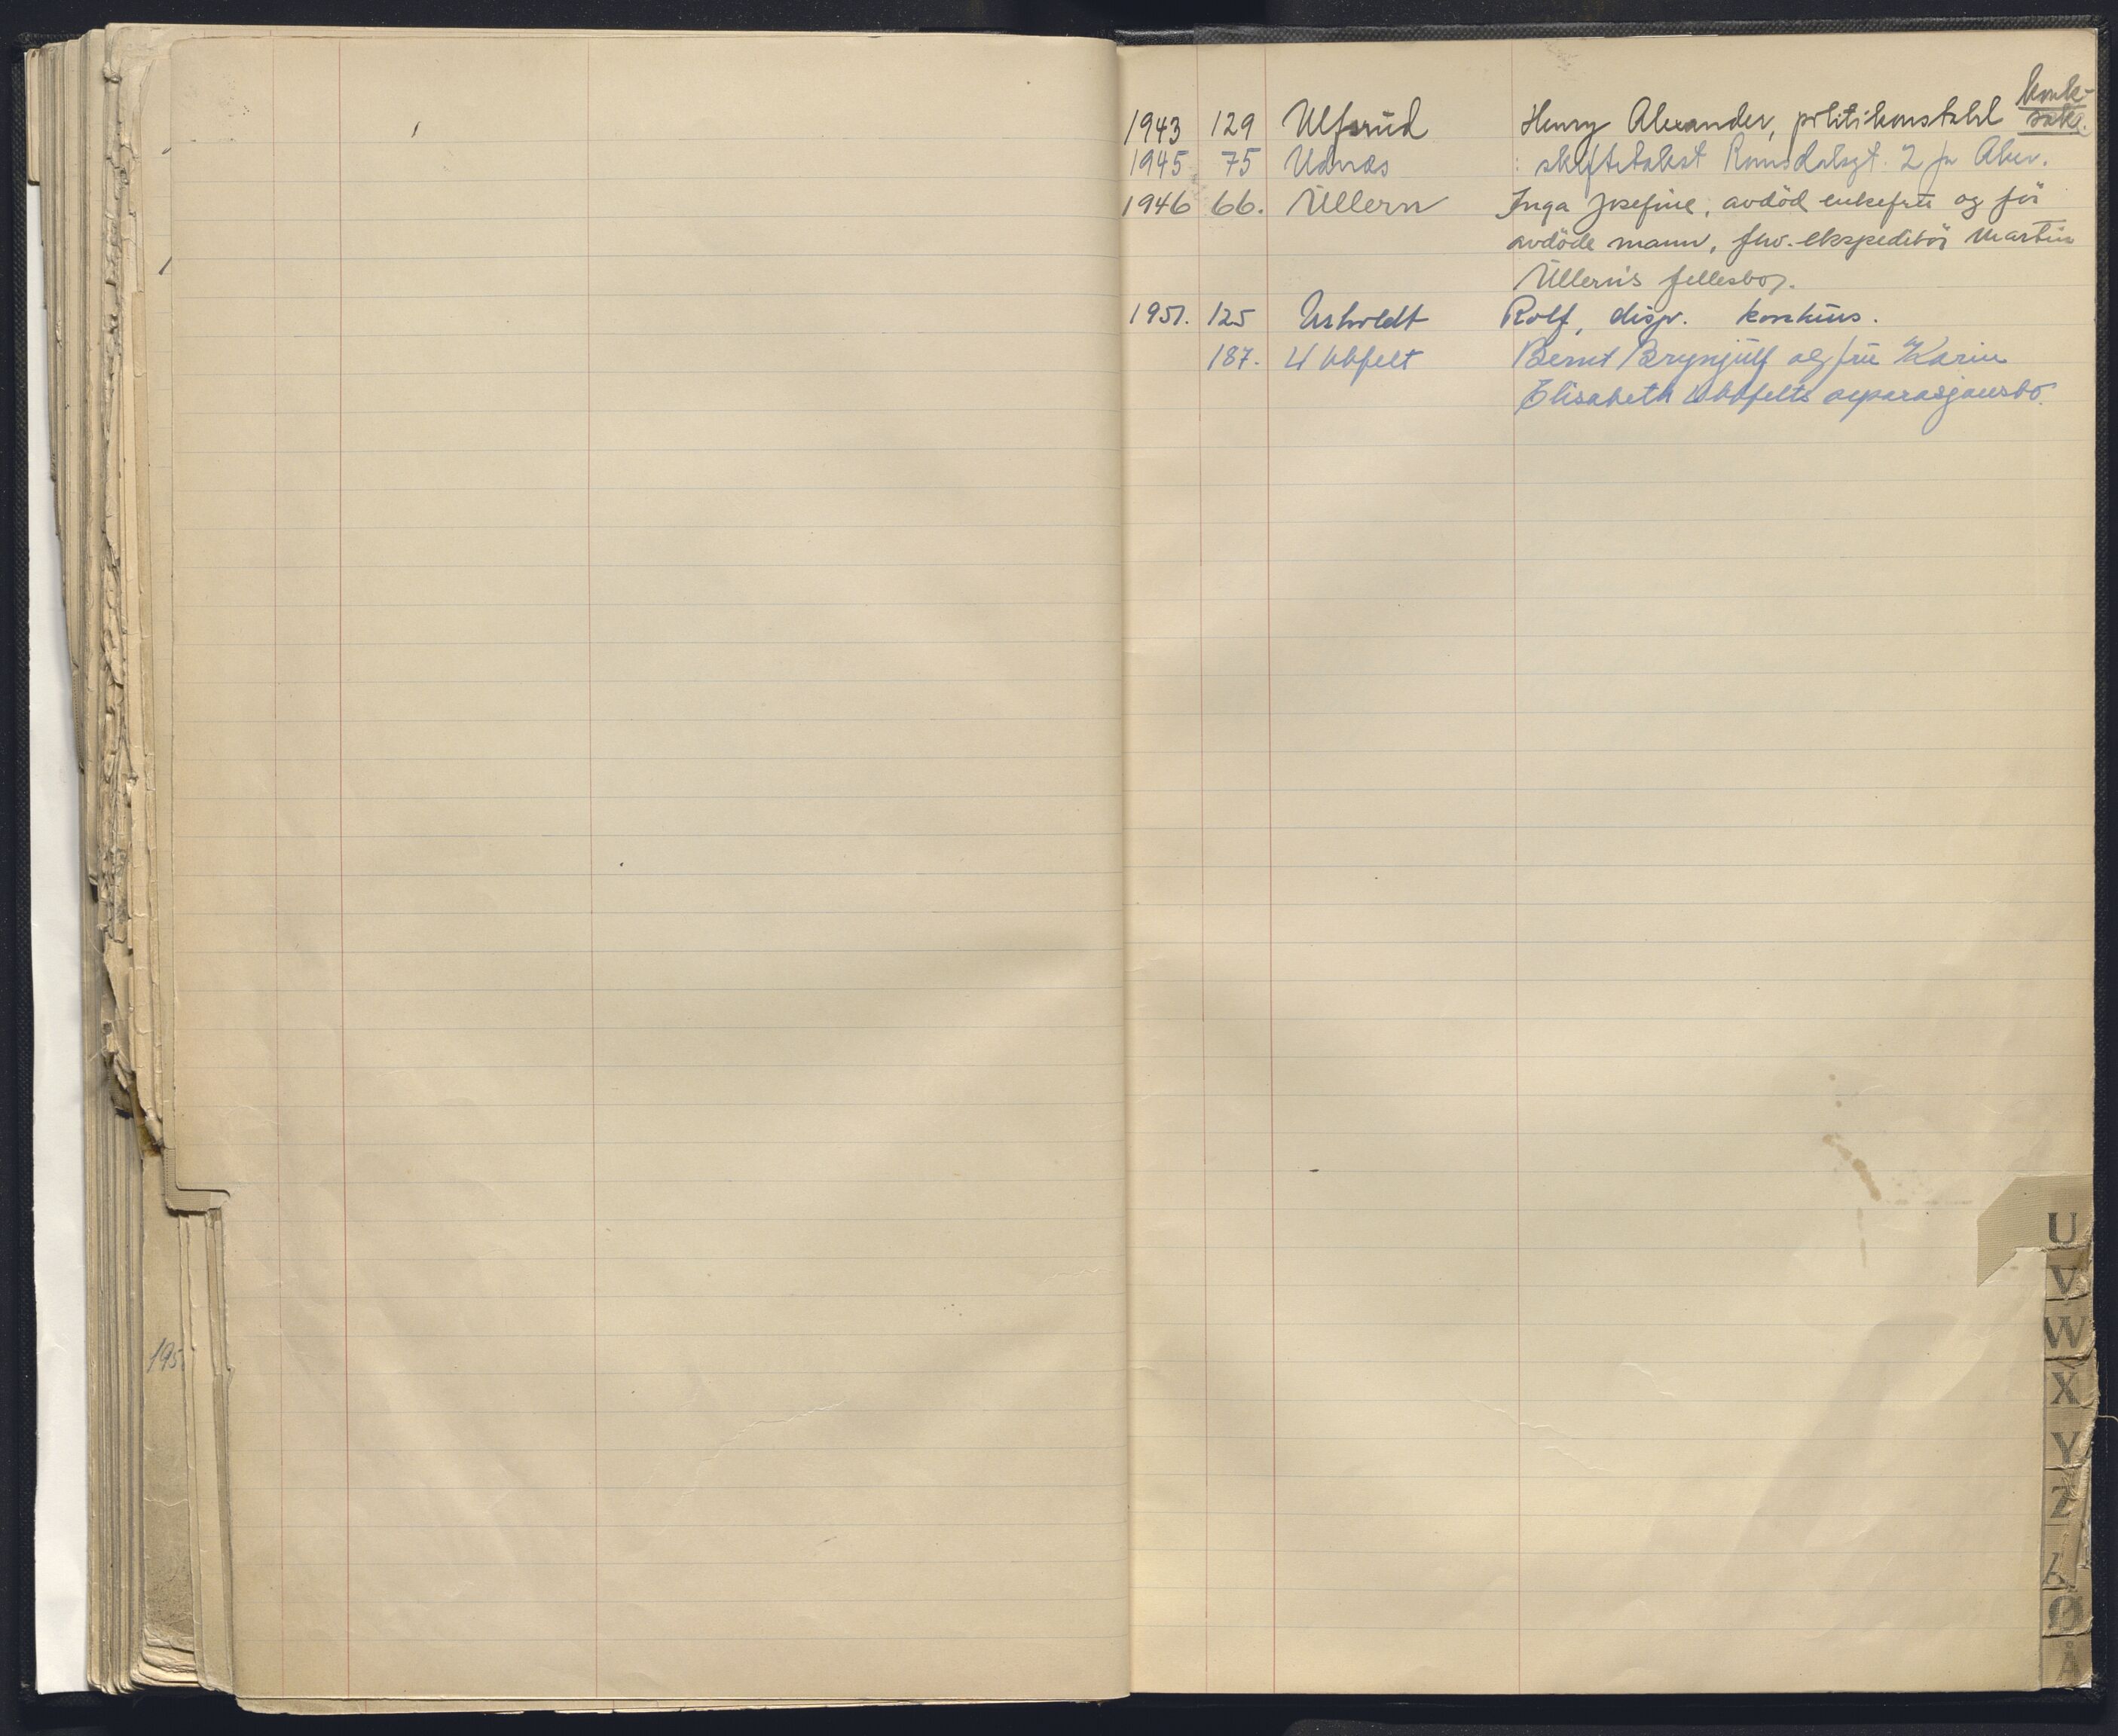 konk-
1943 129 Ulfsrud Henry Alexander, politikonstabel sak.
1945 75 Udnæs : skiftetakst Romsdalsgt. 2 for Aker.
1946 66. Ullern Inga Josefine, avdöd enkefru og för
avdöde mann, fhv. ekspeditör Martin
Ullern's fellesbo.
1951. 125 Usholdt Rolf, disp. konkurs.
187. Ubbfelt Bernt Brynjulf og fru Karin
Elisabeth Ubbfelts separasjonsbo.
195
U
V
W
X
Y
Z
Ø
Å